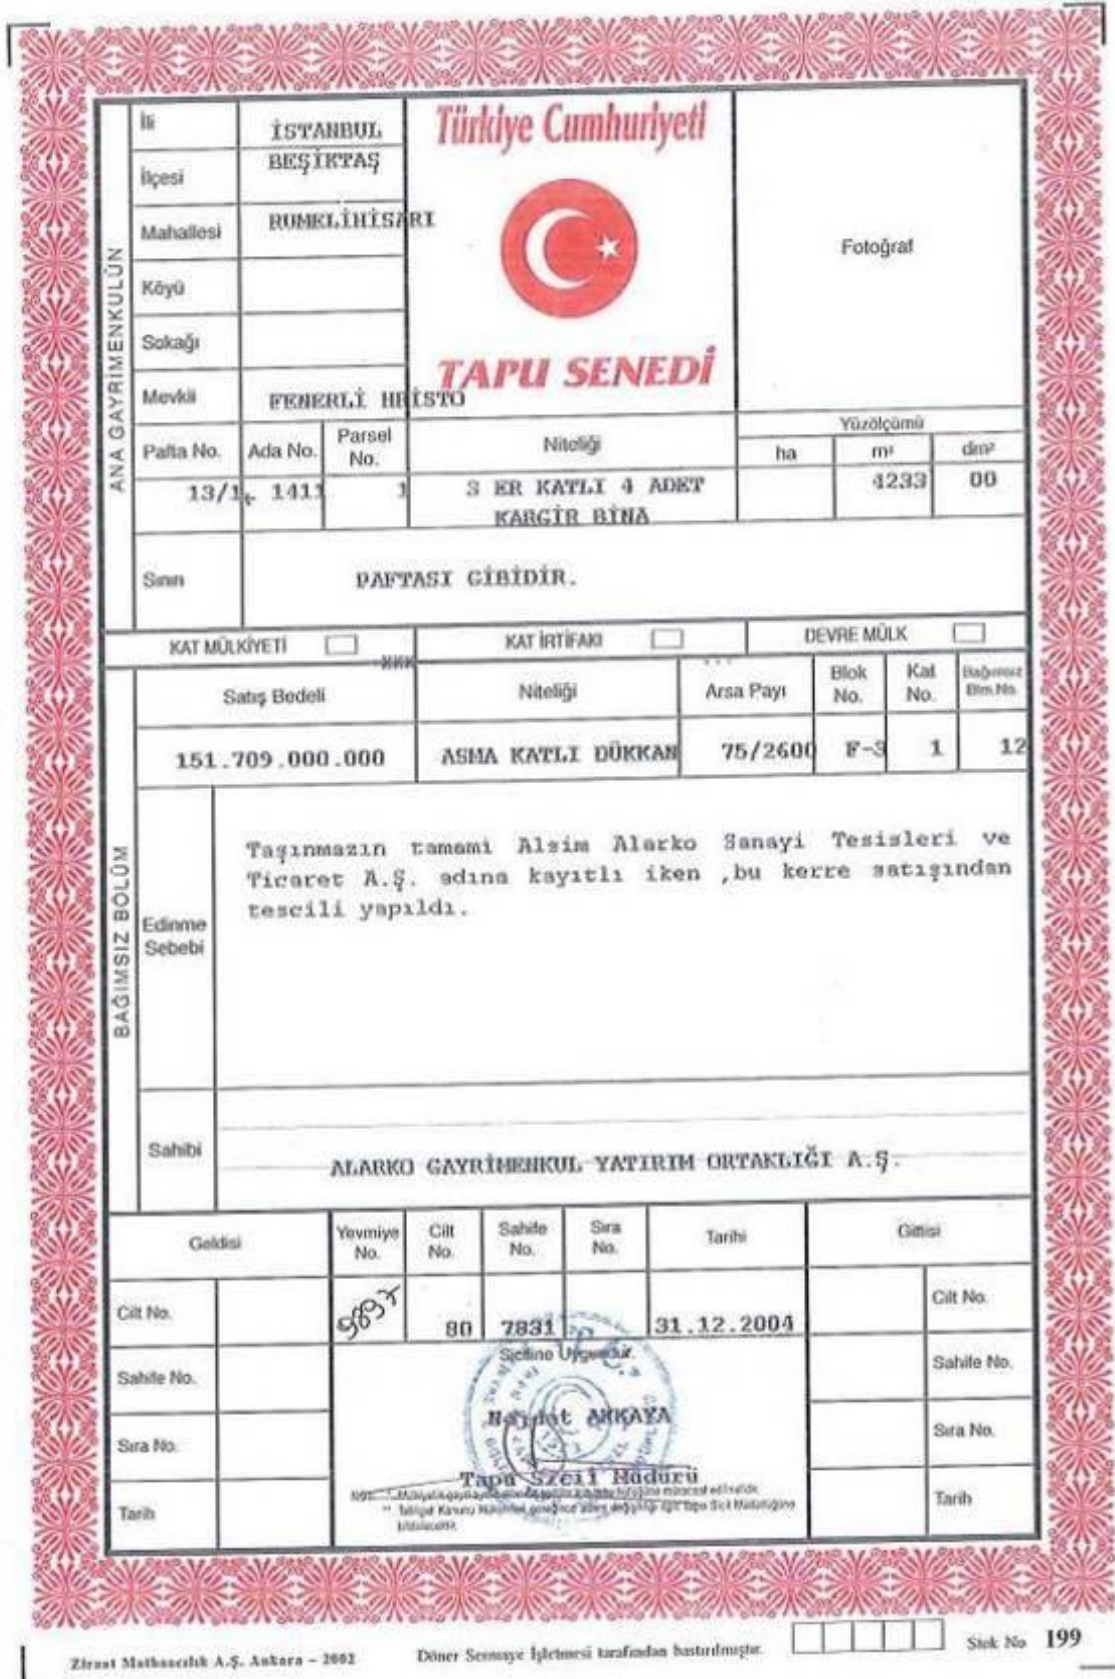 Türkiye Cumhuriyeti
TAPU SENEDİ
Fotoğraf
ANA GAYRİMENKULÜN
İli İSTANBUL
İlçesi BEŞİKTAŞ
Mahallesi RUMELİHİSARI
Köyü
Sokağı
Mevkii FENERLİ HRİSTO
Pafta No. Ada No. Parsel No. Niteliği Yüzölçümü
ha m² dm²
13/1 1411 1 3 ER KATLI 4 ADET 4233 00
KARGİR BİNA
Sınırı PAFTASI GİBİDİR.
KAT MÜLKİYETİ KAT İRTİFAKI DEVRE MÜLK
BAĞIMSIZ BÖLÜM
Satış Bedeli Niteliği Arsa Payı Blok No. Kat No. Bağımsız Blm.No.
151.709.000.000 ASMA KATLI DÜKKAN 75/2600 F-3 1 12
Edinme Sebebi
Taşınmazın tamamı Alsim Alarko Sanayi Tesisleri ve
Ticaret A.Ş. adına kayıtlı iken ,bu kerre satışından
tescili yapıldı.
Sahibi
ALARKO GAYRİMENKUL YATIRIM ORTAKLIĞI A.Ş.
Geldisi Yevmiye No. Cilt No. Sahife No. Sıra No. Tarihi Gittisi
Cilt No. 80 7831 31.12.2004 Cilt No.
Siciline Uygundur.
Sahife No. Sahife No.
AKKAYA
Sıra No. Sıra No.
Tapu Sicil Müdürü
Tarih Tarih
Ziraat Matbaacılık A.Ş. Ankara – 2002
Döner Sermaye İşletmesi tarafından bastırılmıştır.
Stok No 199